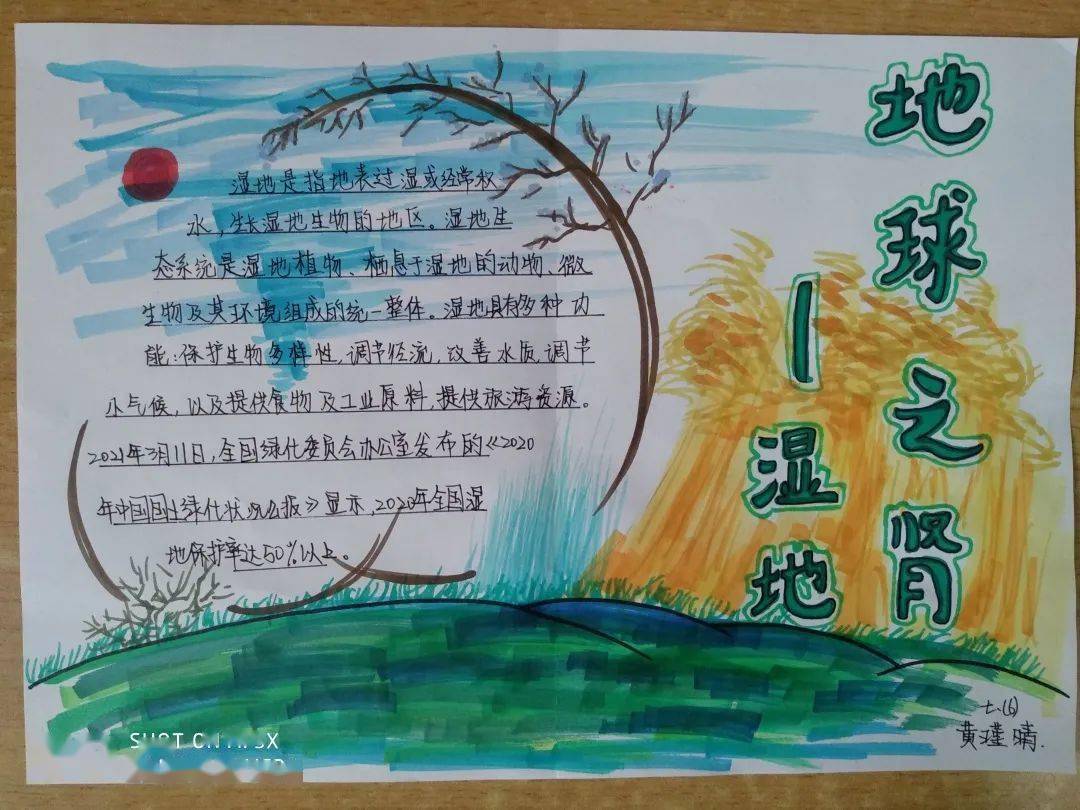 地球之肾
—湿地
湿地是指地表过湿或经常积
水，生长湿地生物的地区。湿地生
态系统是湿地植物、栖息于湿地的动物、微
生物及其环境组成的统一整体。湿地具有多种功
能：保护生物多样性，调节径流，改善水质，调节
小气候，以及提供食物及工业原料，提供旅游资源。
2021年3月11日，全国绿化委员会办公室发布的《2020
年中国国土绿化状况公报》显示，2020年全国湿
地保护率达50%以上。
七.(6)
黄瑾晴.
SHOT ON MI 8X